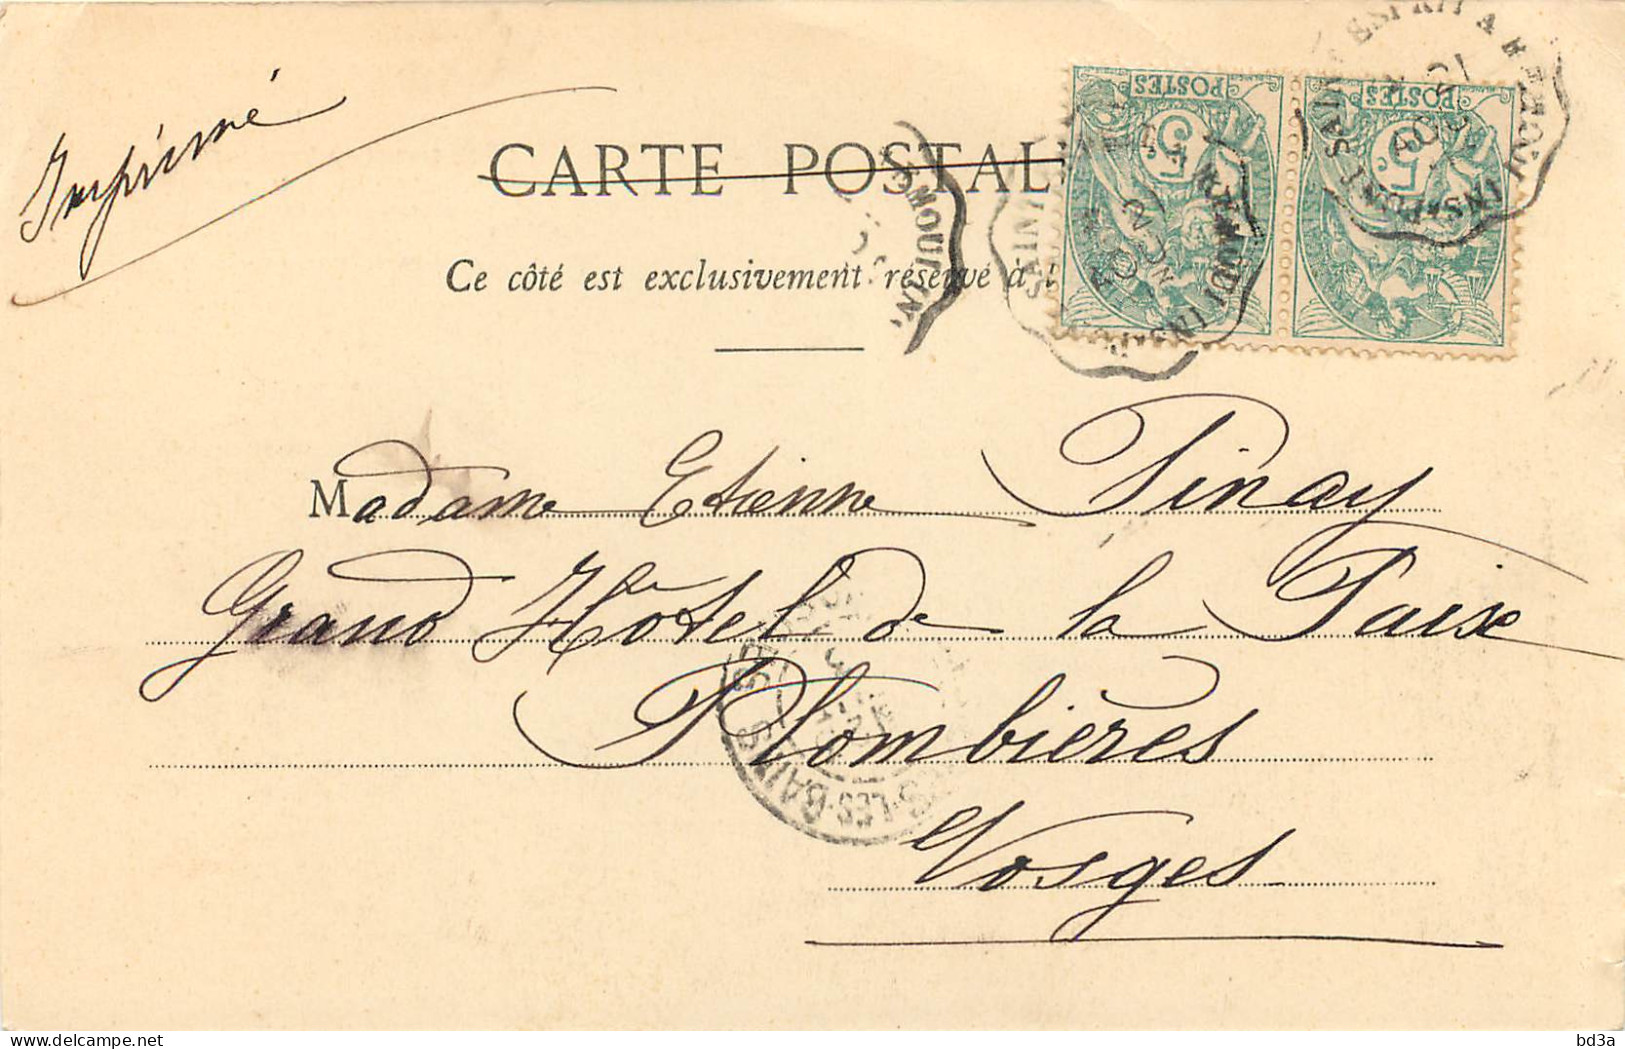 Imprimé
CARTE POSTAL
Ce côté est exclusivement réservé à l
POSTES
5
POSTES
5
SAINT ESPRIT A
SAINT
LES BAINS
Madame Etienne Pinay
Grand Hôtel de la Paix
Plombières
Vosges
bd3a